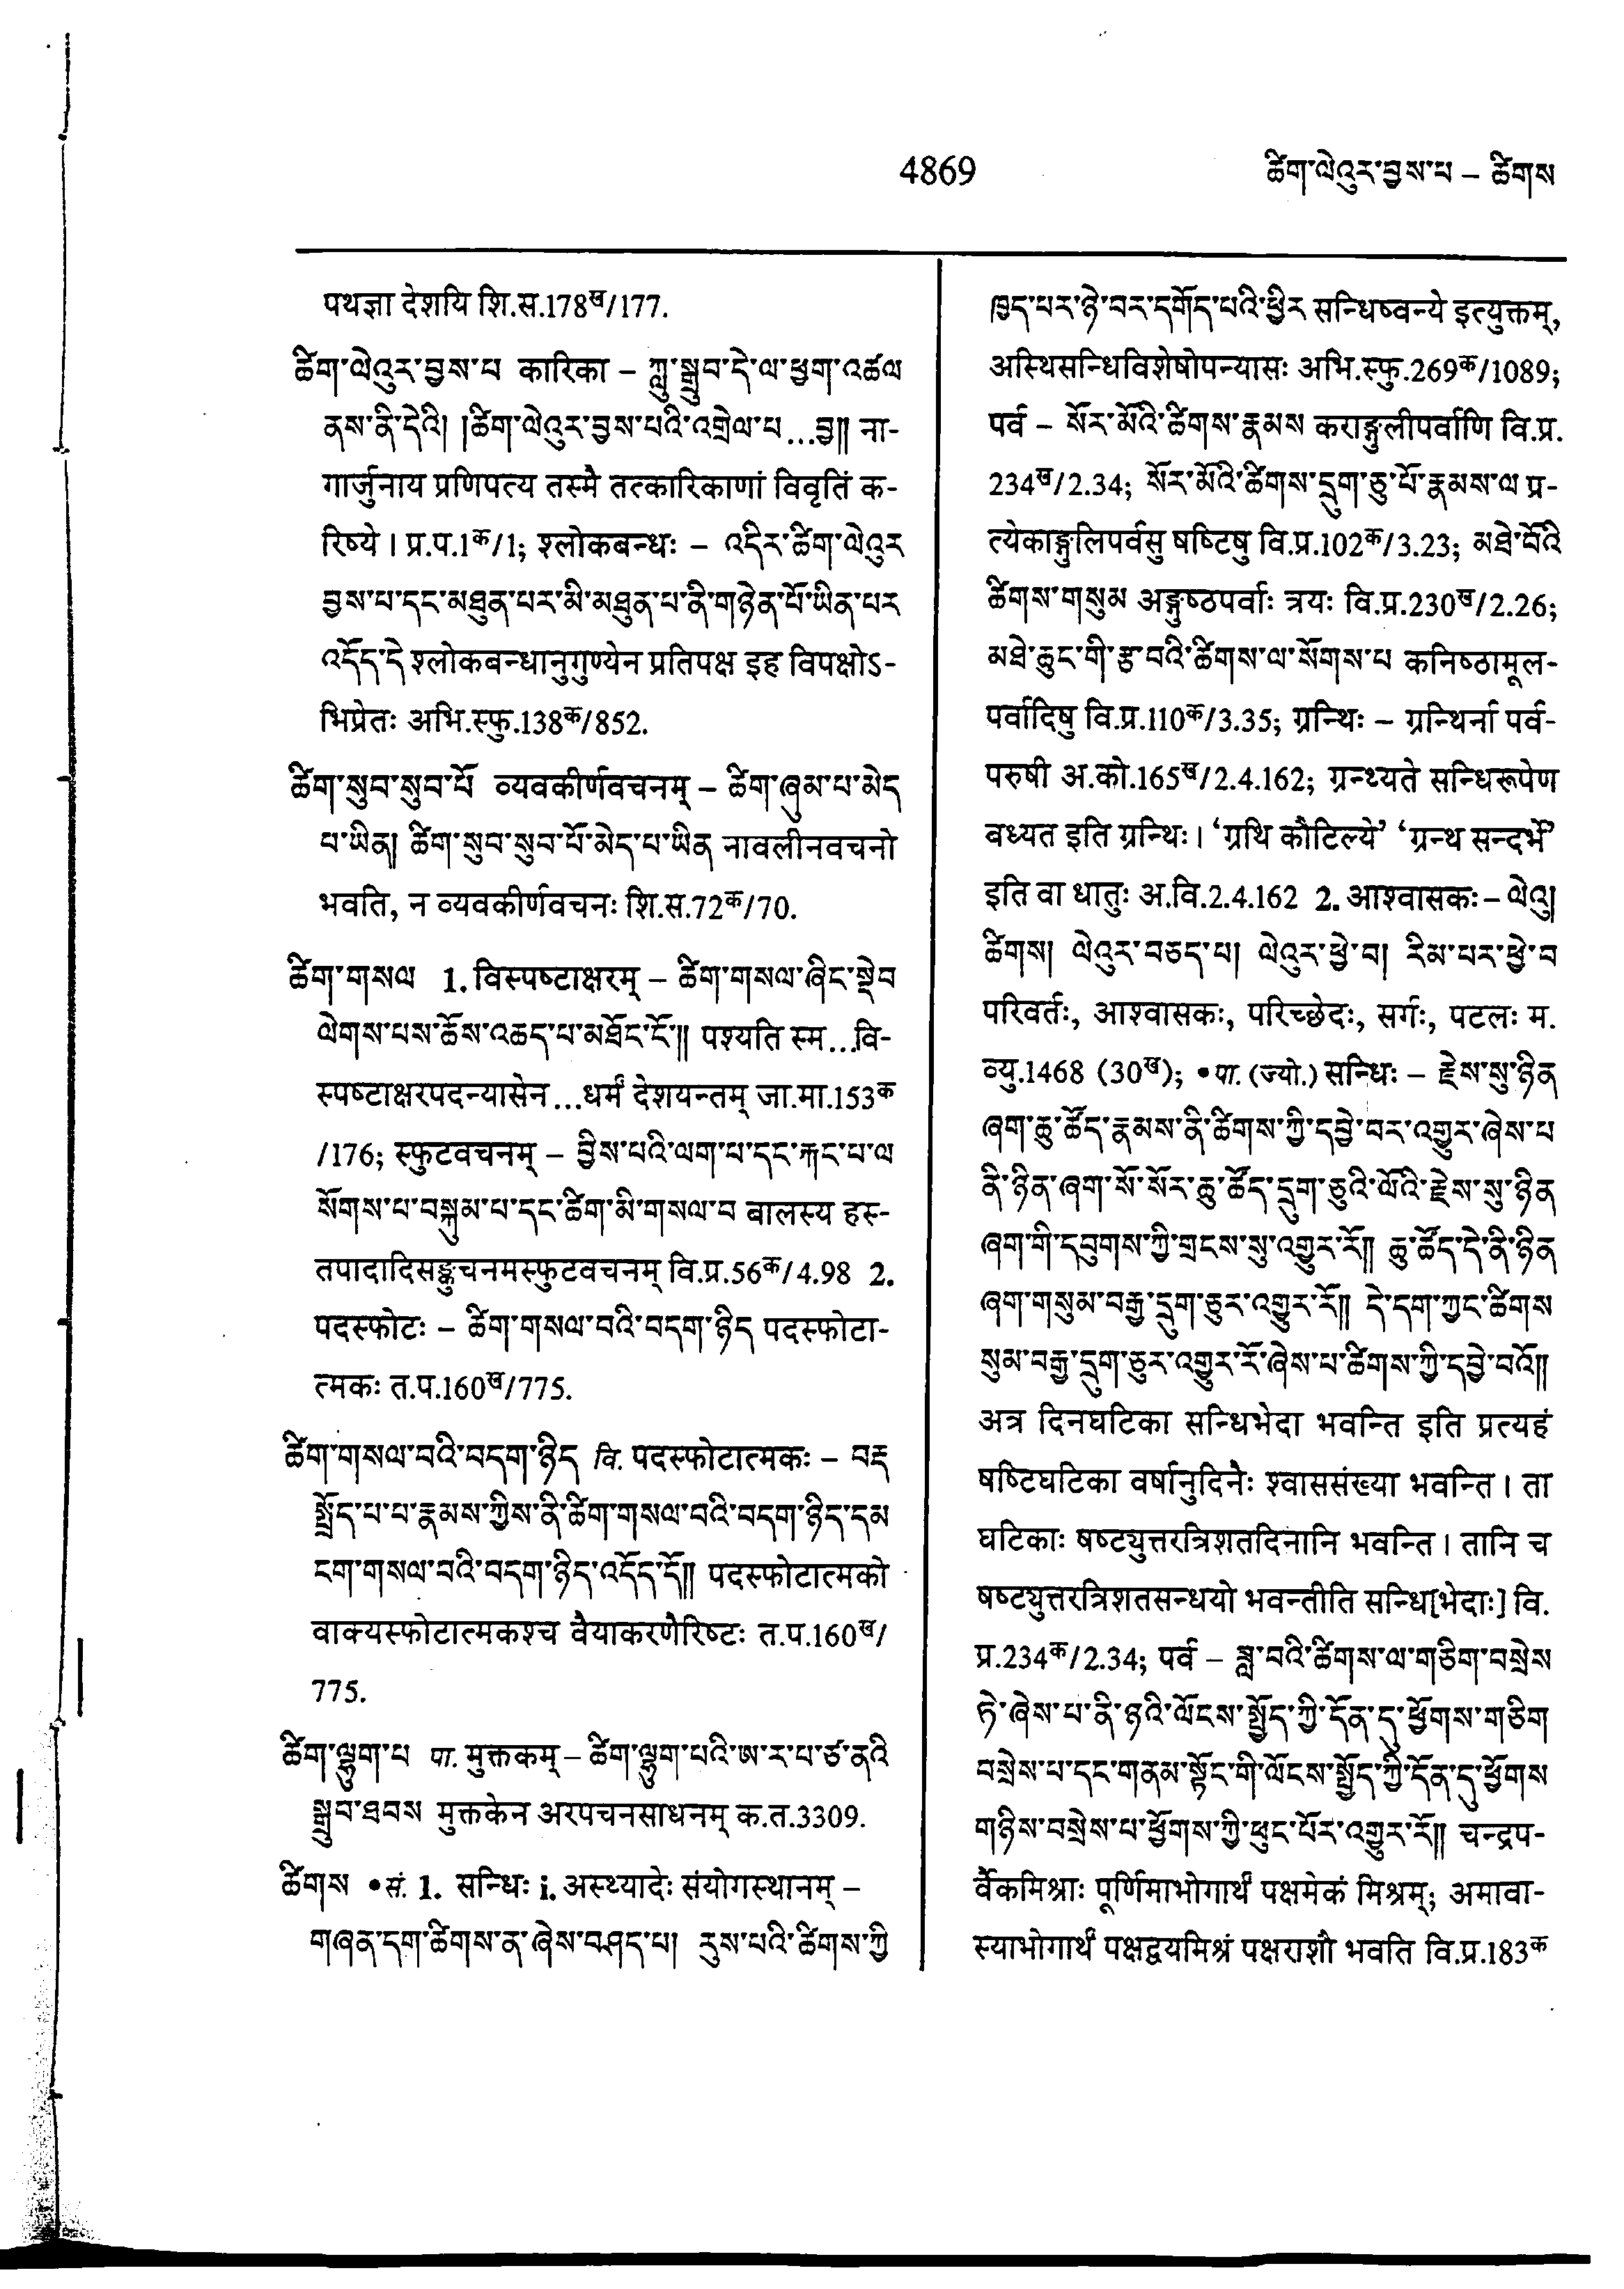 4869
ཚིག་ལེའུར་བྱས་པ – ཚིགས
पथज्ञा देशयि शि.स.178ख/177.
ཚིག་ལེའུར་བྱས་པ कारिका – ཀླུ་སྒྲུབ་དེ་ལ་ཕྱག་འཚལ
ནས་ནི་དེའི། །ཚིག་ལེའུར་བྱས་པའི་འགྲེལ་པ...བྱ།། ना-
गार्जुनाय प्रणिपत्य तस्मै तत्कारिकाणां विवृतिं क-
रिष्ये । प्र.प.1क/1; श्लोकबन्धः – འདིར་ཚིག་ལེའུར
བྱས་པ་དང་མཐུན་པར་མི་མཐུན་པ་ནི་གཉེན་པོ་ཡིན་པར
འདོད་དེ་श्लोकबन्धानुगुण्येन प्रतिपक्ष इह विपक्षोऽ-
भिप्रेतः अभि.स्फु.138क/852.
ཚིག་སུབ་སུབ་པོ व्यवकीर्णवचनम् – ཚིག་ཞུམ་པ་མེད
པ་ཡིན། ཚིག་སུབ་སུབ་པོ་མེད་པ་ཡིན नावलीनवचनो
भवति, न व्यवकीर्णवचनः शि.स.72क/70.
ཚིག་གསལ 1. विस्पष्टाक्षरम् – ཚིག་གསལ་ཞིང་སྡེབ
ལེགས་པས་ཆོས་འཆད་པ་མཐོང་ངོ་།། पश्यति स्म...वि-
स्पष्टाक्षरपदन्यासेन...धर्मं देशयन्तम् जा.मा.153क
/176; स्फुटवचनम् – བྱིས་པའི་ལག་པ་དང་རྐང་པ་ལ
སོགས་པ་བསྐུམ་པ་དང་ཚིག་མི་གསལ་བ बालस्य हस्-
तपादादिसङ्कुचनमस्फुटवचनम् वि.प्र.56क/4.98 2.
पदस्फोटः – ཚིག་གསལ་བའི་བདག་ཉིད पदस्फोटा-
त्मकः त.प.160ख/775.
ཚིག་གསལ་བའི་བདག་ཉིད वि. पदस्फोटात्मकः – བརྡ
སྤྲོད་པ་པ་རྣམས་ཀྱིས་ནི་ཚིག་གསལ་བའི་བདག་ཉིད་དམ
ངག་གསལ་བའི་བདག་ཉིད་འདོད་དོ།། पदस्फोटात्मको
वाक्यस्फोटात्मकश्च वैयाकरणैरिष्टः त.प.160ख/
775.
ཚིག་ལྷུག་པ पा. मुक्तकम् – ཚིག་ལྷུག་པའི་ཨ་ར་པ་ཙ་ནའི
སྒྲུབ་ཐབས मुक्तकेन अरपचनसाधनम् क.त.3309.
ཚིགས •सं. 1. सन्धिः i. अस्थ्यादेः संयोगस्थानम् –
གཞན་དག་ཚིགས་ན་ཞེས་བཤད་པ། རུས་པའི་ཚིགས་ཀྱི
ཁྱད་པར་ཉེ་བར་དགོད་པའི་ཕྱིར सन्धिष्वन्ये इत्युक्तम्,
अस्थिसन्धिविशेषोपन्यासः अभि.स्फु.269क/1089;
पर्व – སོར་མོའི་ཚིགས་རྣམས कराङ्गुलीपर्वाणि वि.प्र.
234ख/2.34; སོར་མོའི་ཚིགས་དྲུག་ཅུ་པོ་རྣམས་ལ प्र-
त्येकाङ्गुलिपर्वसु षष्टिषु वि.प्र.102क/3.23; མཐེ་བོའི
ཚིགས་གསུམ अङ्गुष्ठपर्वाः त्रयः वि.प्र.230ख/2.26;
མཐེ་ཆུང་གི་རྩ་བའི་ཚིགས་ལ་སོགས་པ कनिष्ठामूल-
पर्वादिषु वि.प्र.110क/3.35; ग्रन्थिः – ग्रन्थिर्ना पर्व-
परुषी अ.को.165ख/2.4.162; ग्रन्थ्यते सन्धिरूपेण
वध्यत इति ग्रन्थिः । ‘ग्रथि कौटिल्ये’ ‘ग्रन्थ सन्दर्भे’
इति वा धातुः अ.वि.2.4.162 2. आश्वासकः – ལེའུ།
ཚིགས། ལེའུར་བཅད་པ། ལེའུར་ཕྱེ་བ། རིམ་པར་ཕྱེ་བ
परिवर्तः, आश्वासकः, परिच्छेदः, सर्गः, पटलः म.
व्यु.1468 (30ख); •पा. (ज्यो.) सन्धिः – རྗེས་སུ་ཉིན
ཞག་ཆུ་ཚོད་རྣམས་ནི་ཚིགས་ཀྱི་དབྱེ་བར་འགྱུར་ཞེས་པ
ནི་ཉིན་ཞག་སོ་སོར་ཆུ་ཚོད་དྲུག་ཅུའི་ལོའི་རྗེས་སུ་ཉིན
ཞག་གི་དབུགས་ཀྱི་གྲངས་སུ་འགྱུར་རོ།། ཆུ་ཚོད་དེ་ནི་ཉིན
ཞག་གསུམ་བརྒྱ་དྲུག་ཅུར་འགྱུར་རོ།། དེ་དག་ཀྱང་ཚིགས
སུམ་བརྒྱ་དྲུག་ཅུར་འགྱུར་རོ་ཞེས་པ་ཚིགས་ཀྱི་དབྱེ་བའོ།།
अत्र दिनघटिका सन्धिभेदा भवन्ति इति प्रत्यहं
षष्टिघटिका वर्षानुदिनैः श्वाससंख्या भवन्ति । ता
घटिकाः षष्ट्युत्तरत्रिशतदिनानि भवन्ति । तानि च
षष्ट्युत्तरत्रिशतसन्धयो भवन्तीति सन्धि[भेदाः] वि.
प्र.234क/2.34; पर्व – ཟླ་བའི་ཚིགས་ལ་གཅིག་བསྲེས
ཏེ་ཞེས་པ་ནི་ཉའི་ལོངས་སྤྱོད་ཀྱི་དོན་དུ་ཕྱོགས་གཅིག
བསྲེས་པ་དང་གནམ་སྟོང་གི་ལོངས་སྤྱོད་ཀྱི་དོན་དུ་ཕྱོགས
གཉིས་བསྲེས་པ་ཕྱོགས་ཀྱི་ཕུང་པོར་འགྱུར་རོ།། चन्द्रप-
र्वैकमिश्राः पूर्णिमाभोगार्थं पक्षमेकं मिश्रम्; अमावा-
स्याभोगार्थं पक्षद्वयमिश्रं पक्षराशौ भवति वि.प्र.183क